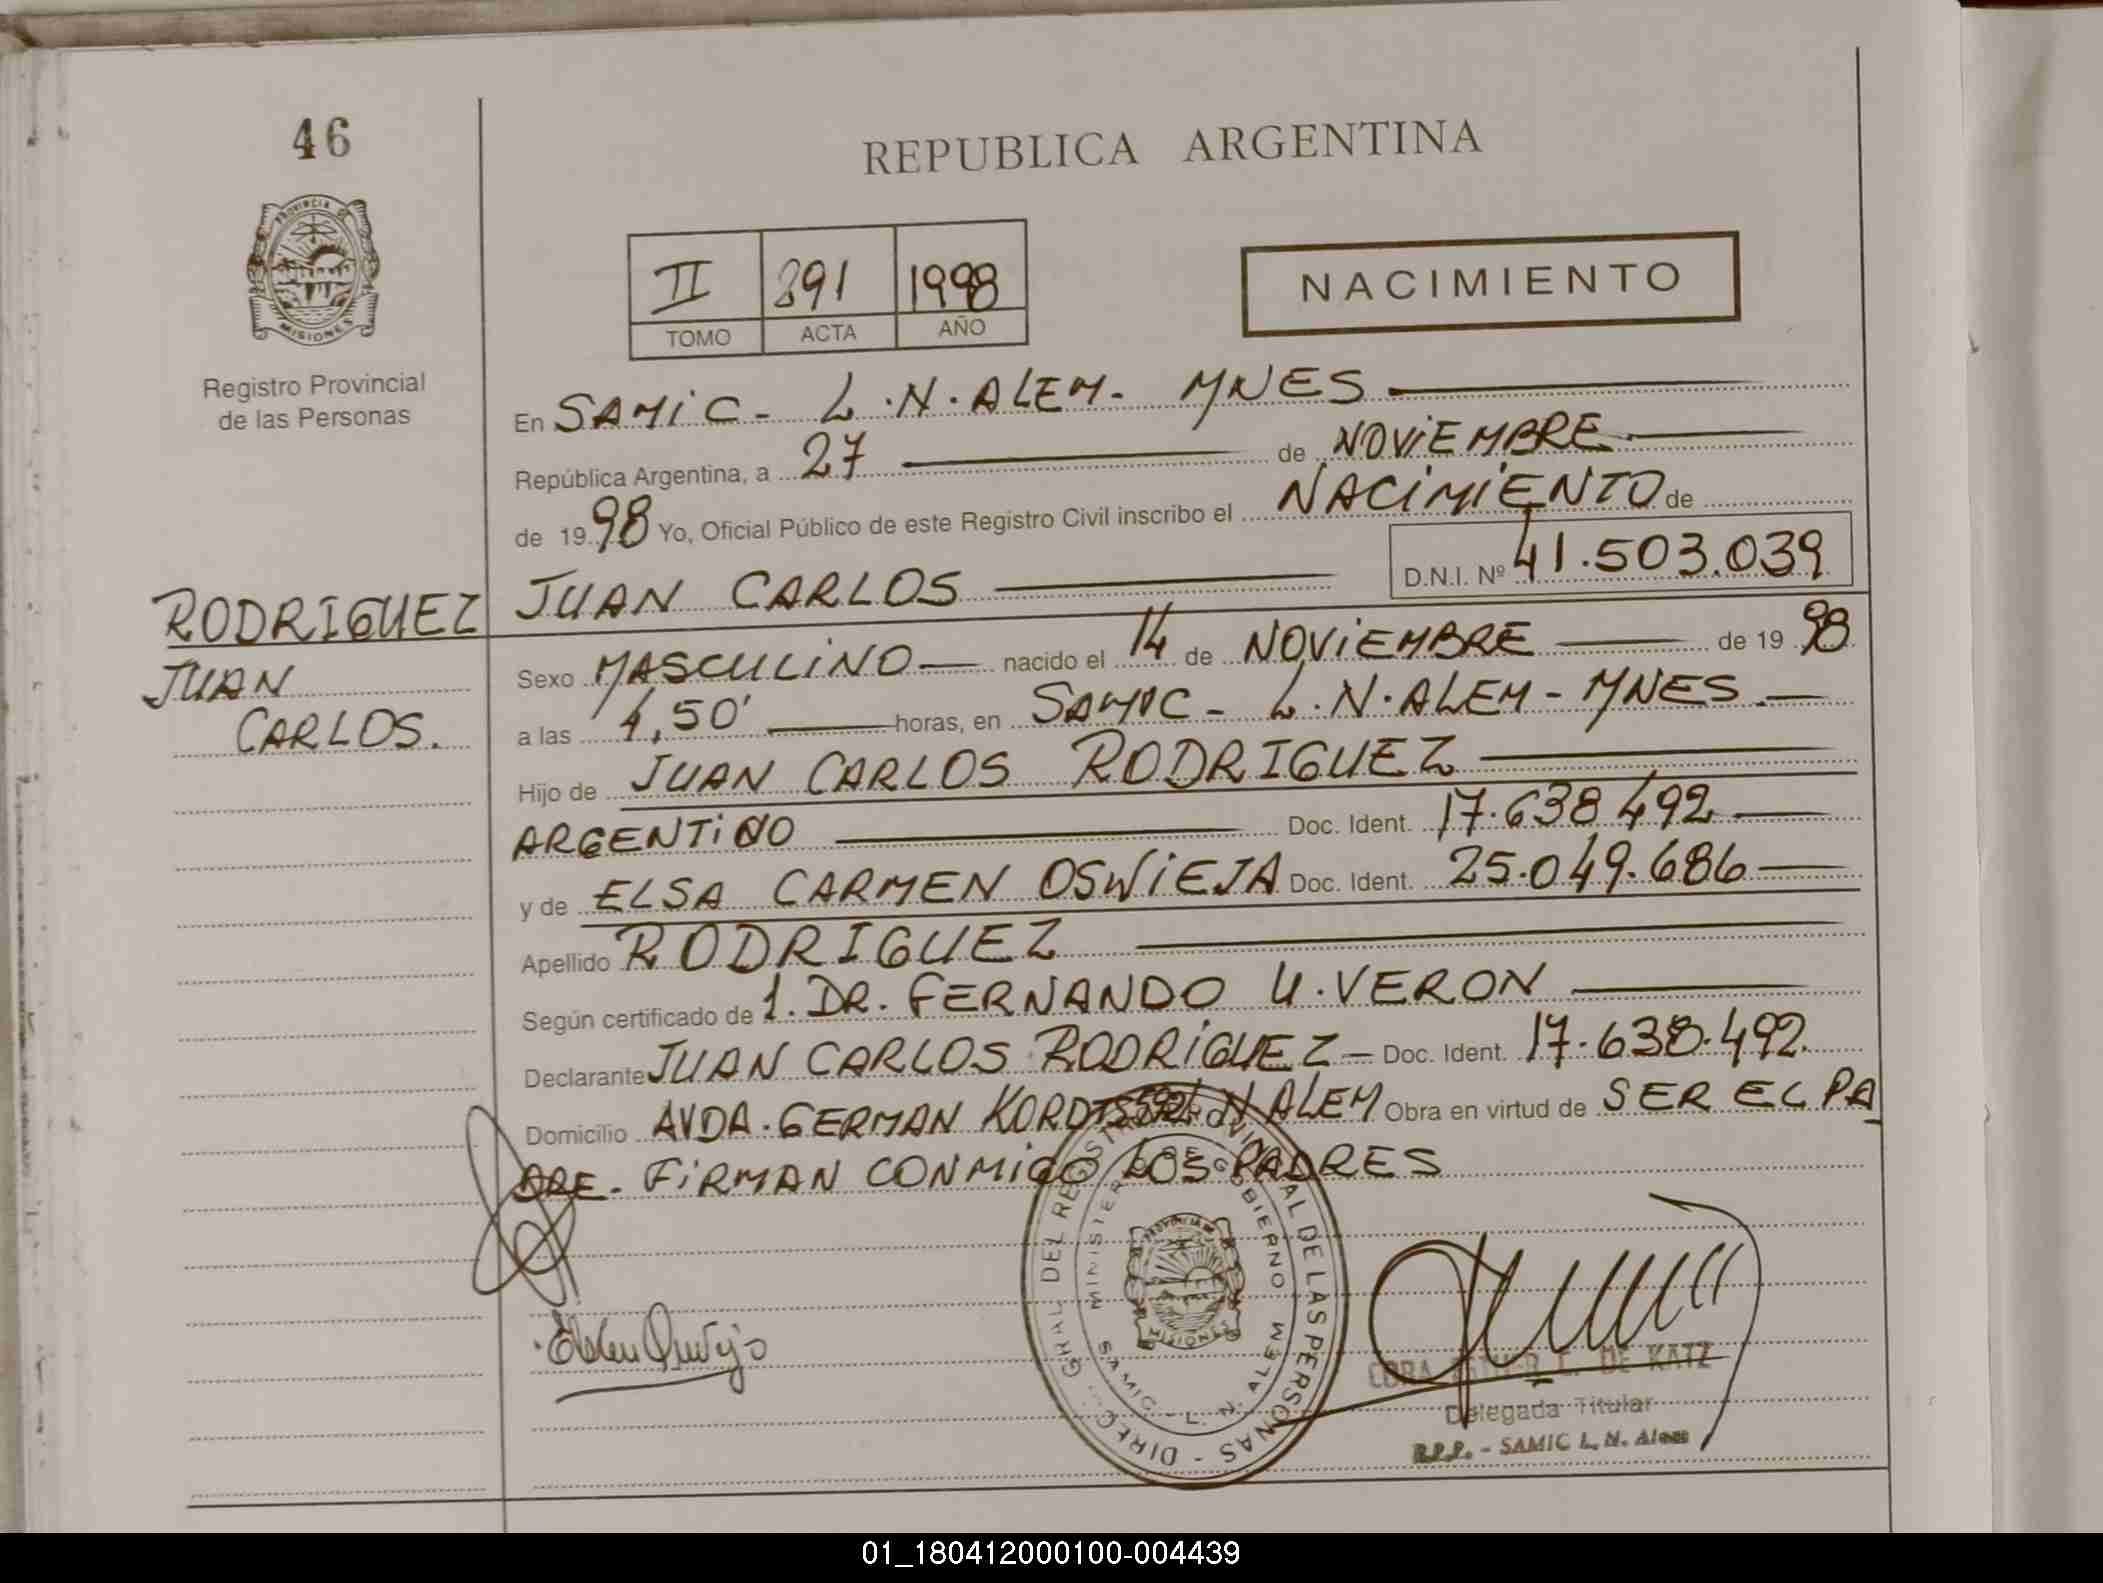 46
REPUBLICA ARGENTINA
PROVINCIA DE
MISIONES
II 391 1998
TOMO ACTA AÑO
NACIMIENTO
Registro Provincial
de las Personas
En SAMIC - L.N.ALEM - MNES
República Argentina, a 27 de NOVIEMBRE
de 1998 Yo, Oficial Público de este Registro Civil inscribo el NACIMIENTO de
JUAN CARLOS D.N.I. Nº 41.503.039
RODRIGUEZ
JUAN
CARLOS.
Sexo MASCULINO nacido el 14 de NOVIEMBRE de 19 98
a las 4,50' horas, en SAMIC - L.N.ALEM - MNES.
Hijo de JUAN CARLOS RODRIGUEZ
ARGENTINO Doc. Ident. 17.638.492
y de ELSA CARMEN OSWIEJA Doc. Ident. 25.049.686
Apellido RODRIGUEZ
Según certificado de 1. DR. FERNANDO U. VERON
Declarante JUAN CARLOS RODRIGUEZ - Doc. Ident. 17.638.492.
Domicilio AVDA. GERMAN L N ALEM Obra en virtud de SER EL PA
DRE. FIRMAN CONMIGO LOS PADRES
DIREC. GRAL DEL REGISTRO PROVINCIAL DE LAS PERSONAS -
MINISTERIO DE GOBIERNO
SAMIC - L. N. ALEM
PROVINCIA DE
MISIONES
L. DE KATZ
Delegada Titular
R.P.P. - SAMIC L. N. Alem
01_180412000100-004439